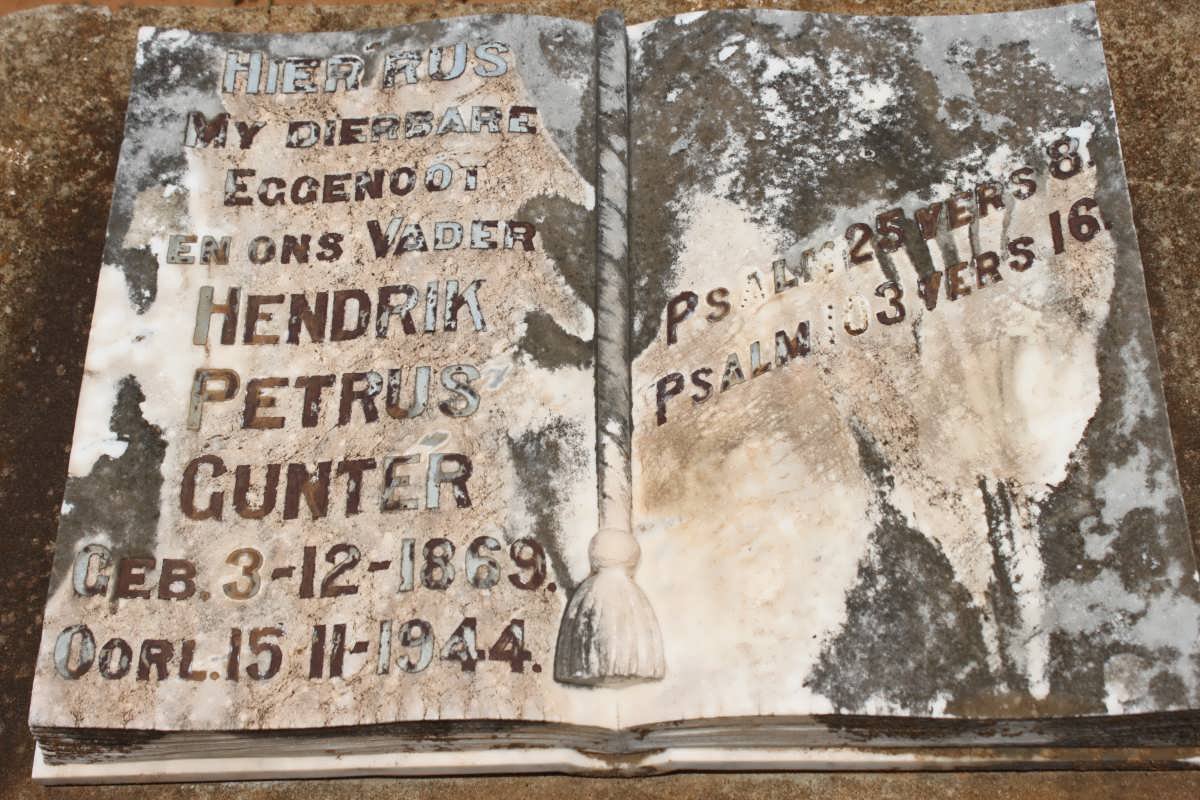 HIER RUS
MY DIERBARE
EGGENOOT
EN ONS VADER
HENDRIK
PETRUS
GUNTER
GEB. 3-12-1869.
OORL. 15 11-1944.
PSALM 25 VERS 8.
PSALM 103 VERS 16.